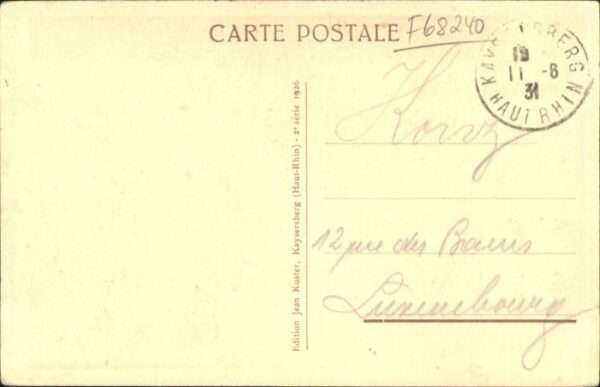 CARTE POSTALE
F68240
KAYSERSBERG
19
11 -8
31
HAUT RHIN
12 rue des Bains
Luxembourg
Edition Jean Kuster, Kaysersberg (Haut-Rhin) - 2e série 1926